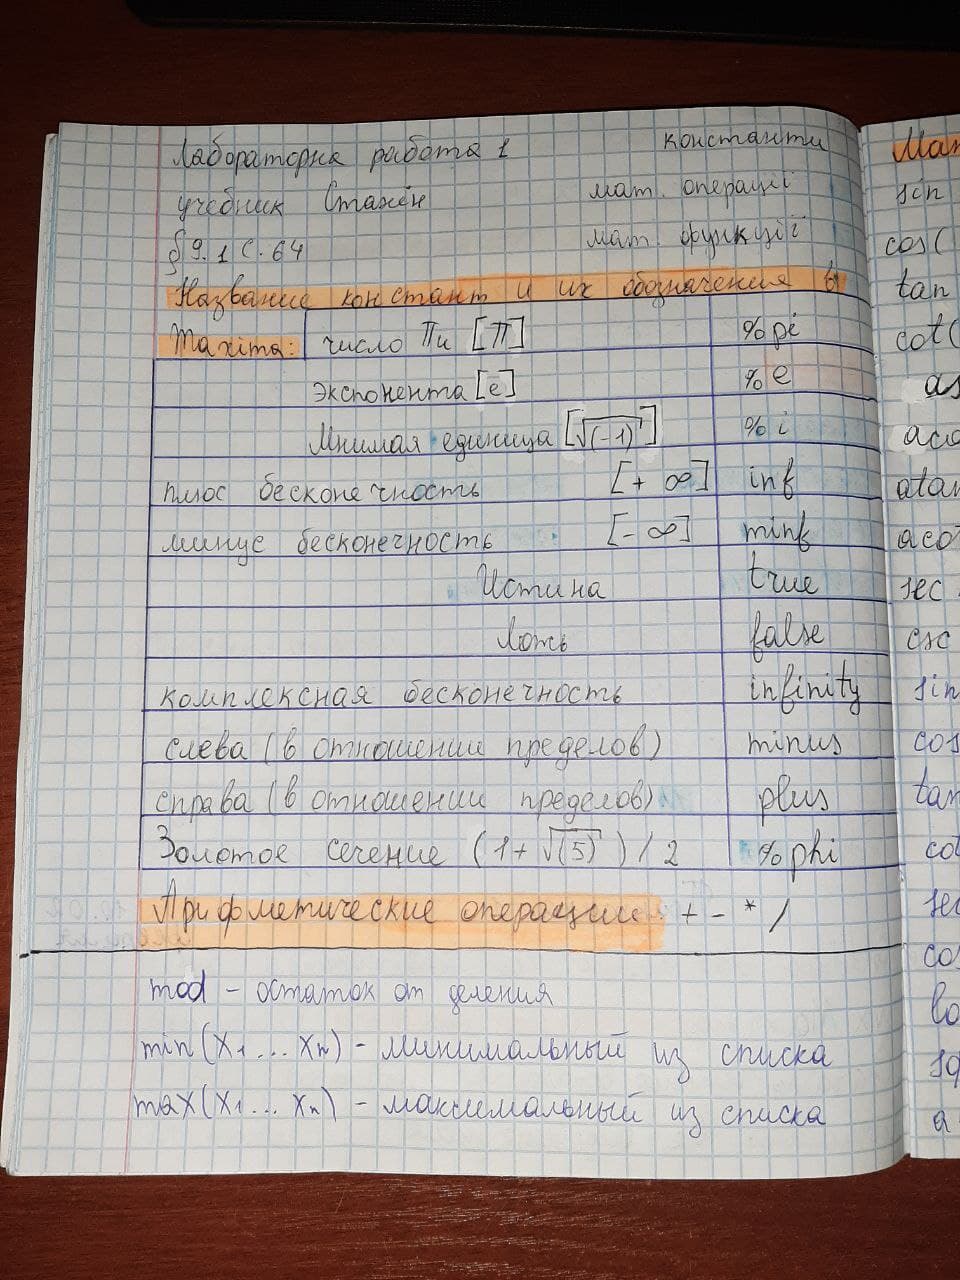 Лабораторна работа 1 константи
учебник Стахін мат. операції
§ 9.1 с. 64 мат. функції
Название констант и их обозначения в
Maxima: число Пи [π] %pi
Экспонента [e] %e
Мнимая единица [√(-1)] %i
плюс бесконечность [+ ∞] inf
минус бесконечность [- ∞] minf
Истина true
Ложь false
комплексная бесконечность infinity
слева (в отношении пределов) minus
справа (в отношении пределов) plus
Золотое сечение (1+√(5))/2 %phi
Арифметические операции: + - * /
mod - остаток от деления
min(x1...xn) - минимальный из списка
max(x1...xn) - максимальный из списка
sin
cos(
tan
cot(
as
aco
atan
aco
sec
csc
sin
cos
tan
cot
sec
cos
lo
sq
a